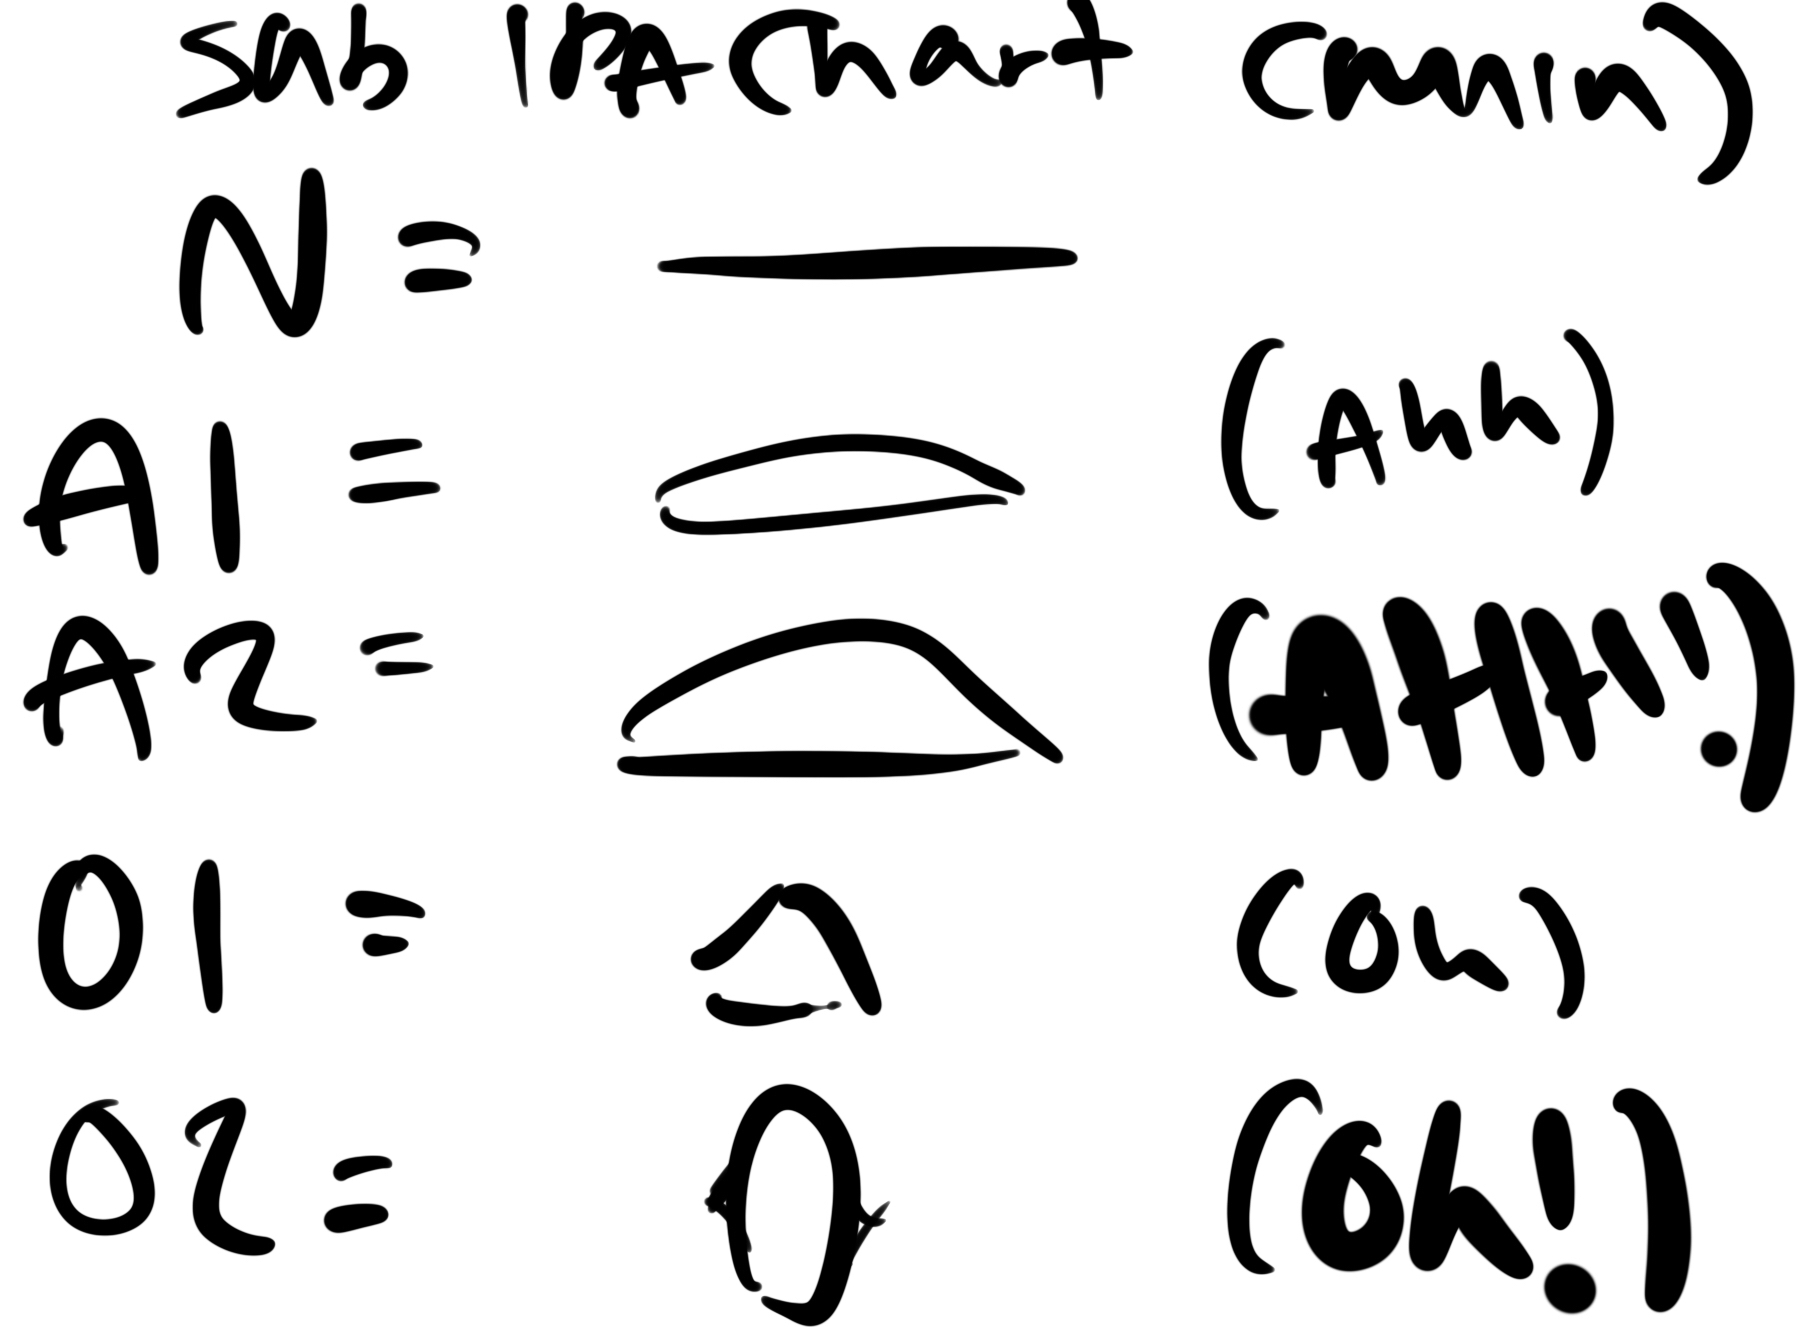 Sab IPA Chart (main)
N =
A1 = (Ahh)
A2 = (AHH!)
O1 = (Oh)
O2 = (Oh!)